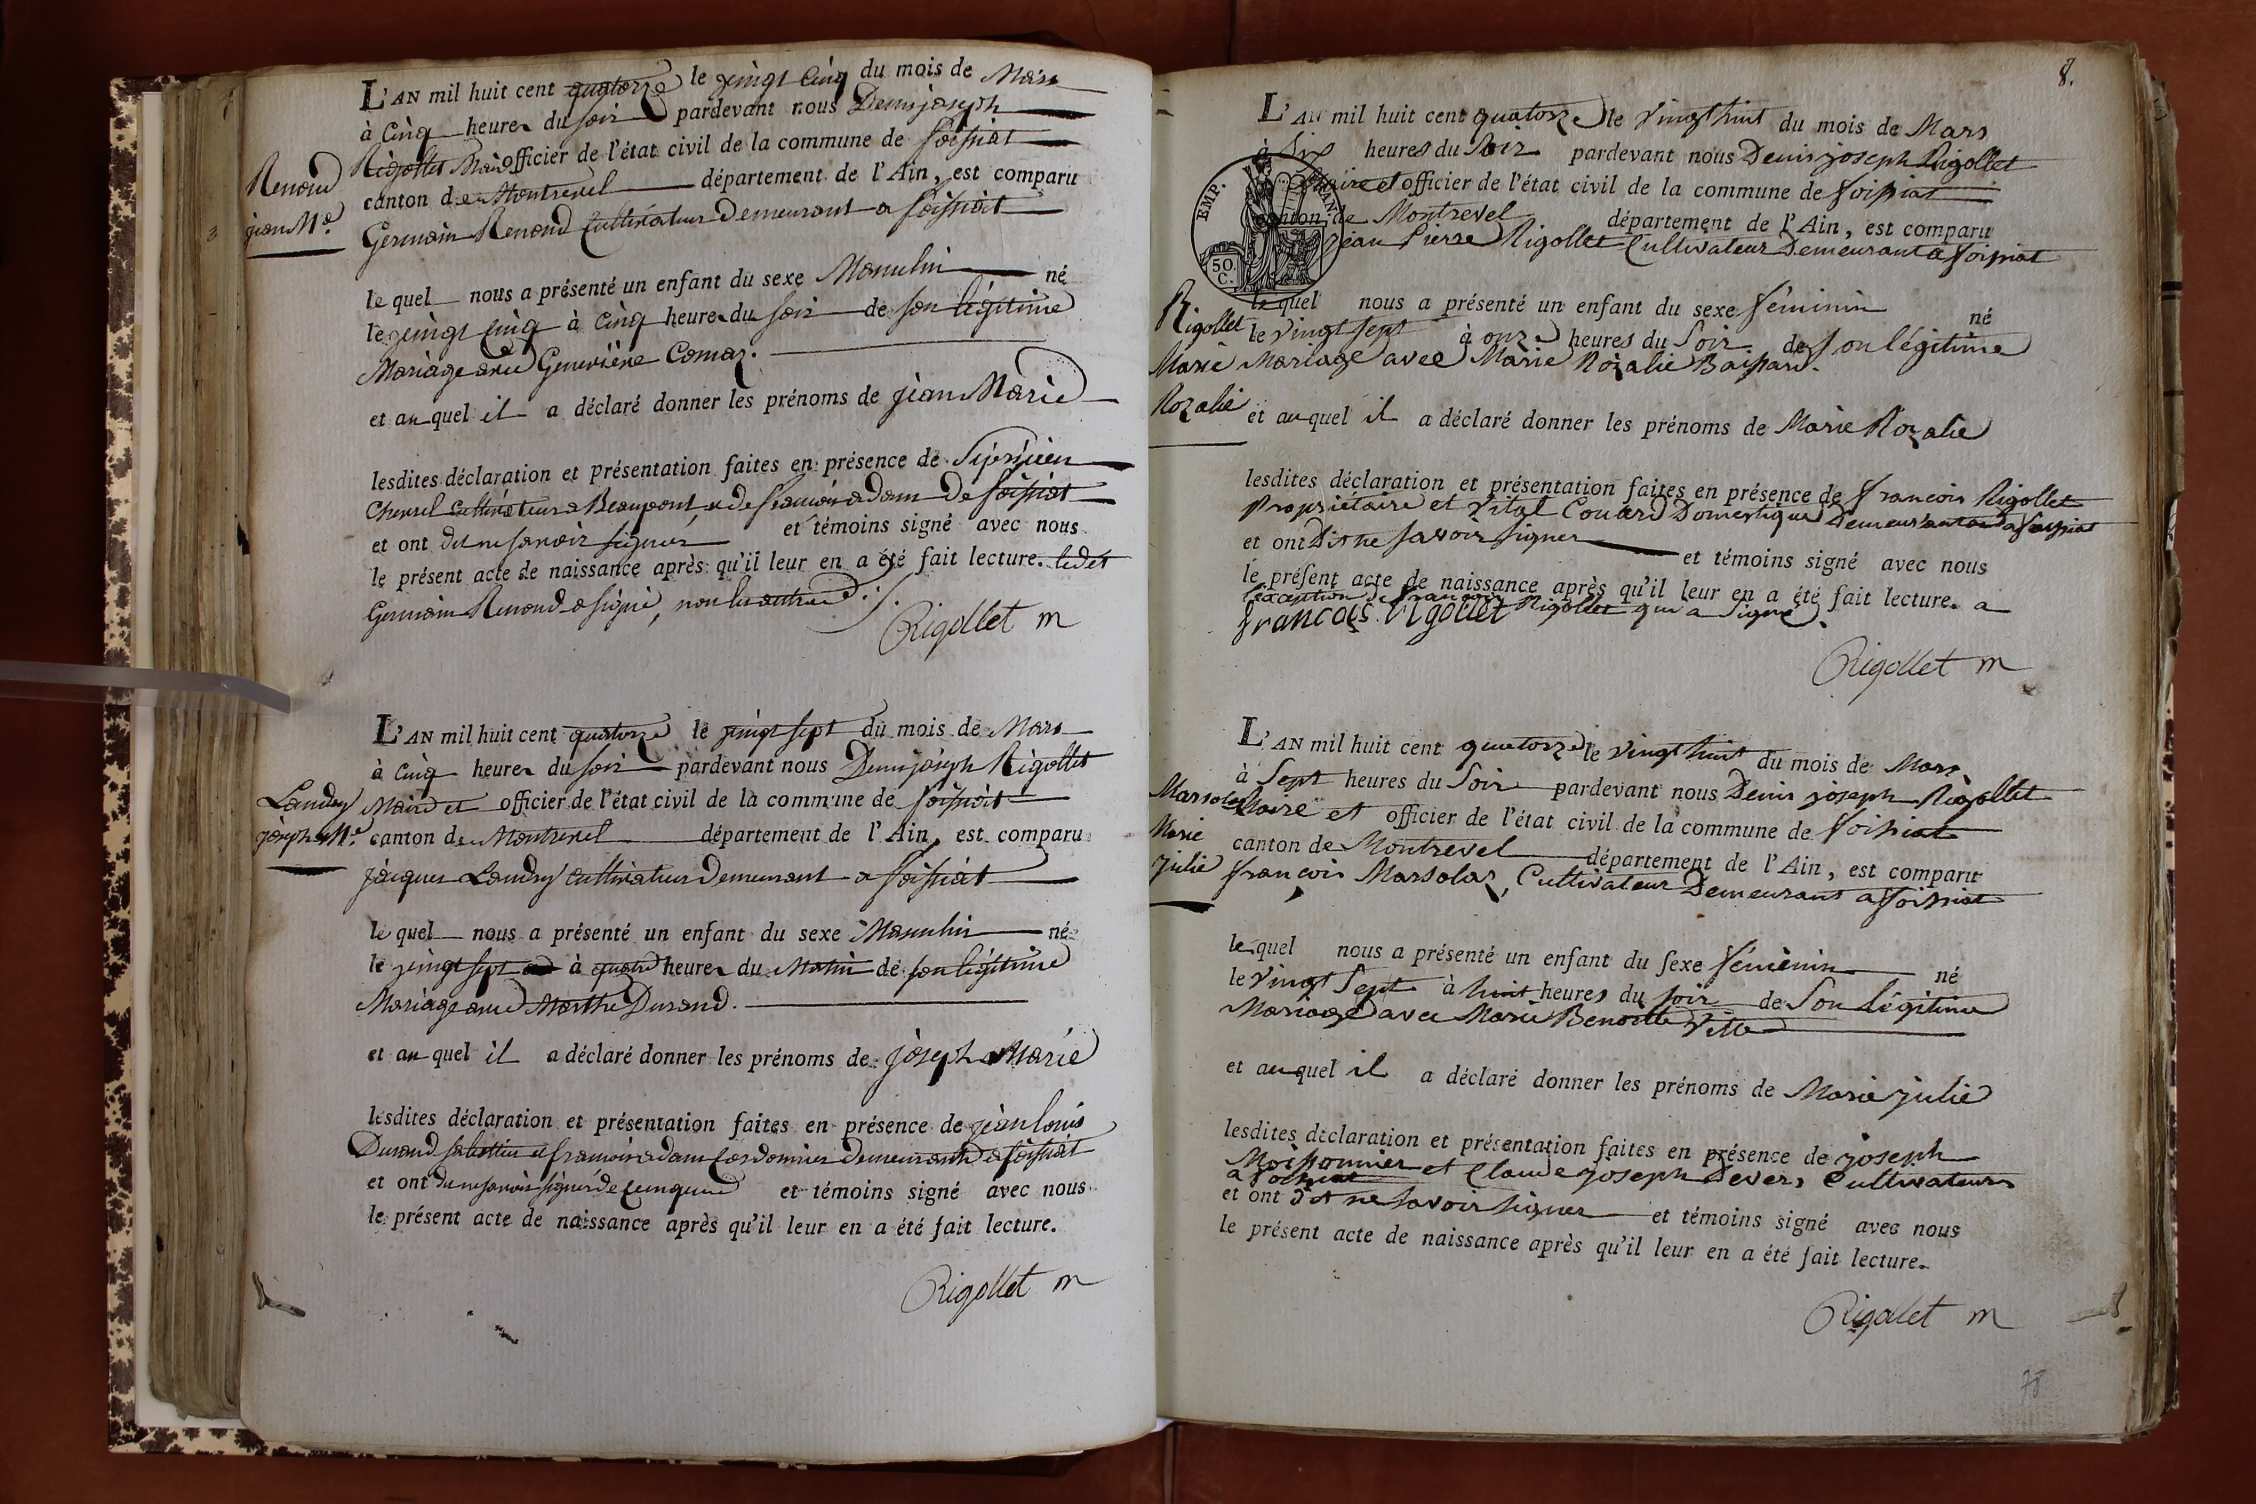 L'AN mil huit cent quatorze le vingt cinq du mois de Mars
à cinq heures du soir pardevant nous Denis joseph
Rigollet Maire officier de l'état civil de la commune de foissiat
canton de Montrevel département de l'Ain, est comparu
Germain Renoud Cultivateur demeurant a foissiat
Renoud
jean Me.
le quel nous a présenté un enfant du sexe Masculin né
le vingt cinq à cinq heures du soir de son légitime
Mariage avec Geneviève Comaz.
et au quel il a déclaré donner les prénoms de jean Marie
lesdites déclaration et présentation faites en présence de
Cultivateur a Beaupont, et de francois adam de foissiat
et ont dit ne savoir signer et témoins signé avec nous
le présent acte de naissance après qu'il leur en a été fait lecture. ledit
Germain Renoud a signé, non les autres
Rigollet m
L'AN mil huit cent quatorze le vingt sept du mois de Mars
à cinq heures du soir pardevant nous Denis joseph Rigollet
Maire et officier de l'état civil de la commune de foissiat
canton de Montrevel département de l'Ain, est comparu
jacques Landry cultivateur demeurant a foissiat
Landry
joseph Me.
le quel nous a présenté un enfant du sexe Masculin né
le vingt sept à quatre heures du Matin de son légitime
Mariage avec Marthe Durand.
et au quel il a déclaré donner les prénoms de joseph Marie
lesdites déclaration et présentation faites en présence de jean louis
Durand sabottier et francois adam Cordonnier demeurants a foissiat
et ont dit ne savoir signer de ce enquis et témoins signé avec nous
le présent acte de naissance après qu'il leur en a été fait lecture.
Rigollet m
8.
L'AN mil huit cent quatorze le vingt huit du mois de Mars
à six heures du Soir pardevant nous Denis joseph Rigollet
Maire et officier de l'état civil de la commune de foissiat
canton de Montrevel département de l'Ain, est comparu
jean Pierre Rigollet Cultivateur Demeurant a foissiat
EMP. FRAN.
50.
C.
Rigollet
Marie
Rozalie
le quel nous a présenté un enfant du sexe féminin né
le vingt sept à onze heures du Soir de son légitime
Mariage avec Marie Rozalie Baissard.
et au quel il a déclaré donner les prénoms de Marie Rozalie
lesdites déclaration et présentation faites en présence de francois Rigollet
Propriétaire et vital Couard Domestique Demeurant a foissiat
et ont Dit ne savoir signer et témoins signé avec nous
le présent acte de naissance après qu'il leur en a été fait lecture. a
l'exception de francois Rigollet qui a signé.
francois Rigollet
Rigollet m
L'AN mil huit cent quatorze le vingt huit du mois de Mars
à Sept heures du Soir pardevant nous Denis joseph Rigollet
Maire et officier de l'état civil de la commune de foissiat
canton de Montrevel département de l'Ain, est comparu
francois Marsolas, Cultivateur Demeurant a foissiat
Marsolas
Marie
julie
le quel nous a présenté un enfant du sexe féminin né
le vingt Sept à huit heures du soir de Son légitime
Mariage avec Marie Benoitte vitte
et au quel il a déclaré donner les prénoms de Marie julie
lesdites déclaration et présentation faites en présence de joseph
Moissonnier et Claude joseph Devers Cultivateurs
a foissiat
et ont dit ne savoir signer et témoins signé avec nous
le présent acte de naissance après qu'il leur en a été fait lecture.
Rigollet m
78